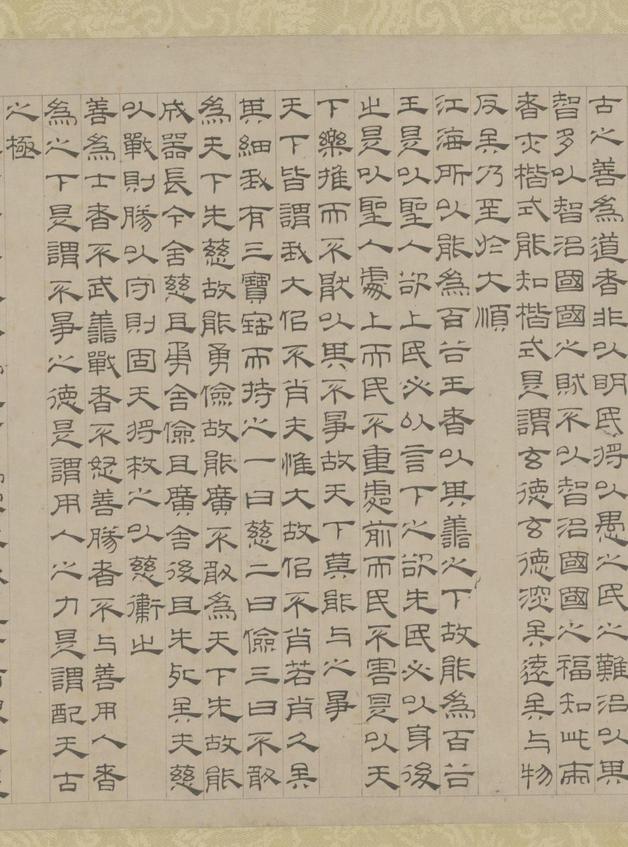 古之善爲道者非以明民將以愚之民之難治以其
智多以智治國國之賊不以智治國國之福知此兩
者亦楷式能知楷式是謂玄德玄德深矣遠矣与物
反矣乃至於大順
江海所以能爲百谷王者以其善之下故能爲百谷
王是以聖人欲上民必以言下之欲先民必以身後
之是以聖人處上而民不重處前而民不害是以天
下樂推而不猒以其不爭故天下莫能与之爭
天下皆謂我大佀不肖夫惟大故佀不肖若肖久矣
其細我有三寶寶而持之一曰慈二曰儉三曰不敢
爲天下先慈故能勇儉故能廣不敢爲天下先故能
成器長今舍慈且勇舍儉且廣舍後且先死矣夫慈
以戰則勝以守則固天將救之以慈衛之
善爲士者不武善戰者不怒善勝者不与善用人者
爲之下是謂不爭之德是謂用人之力是謂配天古
之極